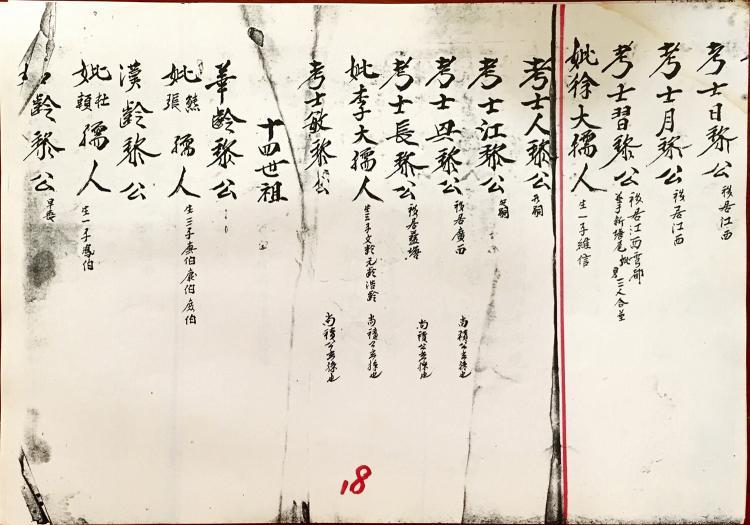 考士日黎公 移居江西
考士月黎公 移居江西
考士習黎公 移居江西雩都
葬于新塘尾 妣 男二人合並
妣徐大孺人 生一子維信
考士人黎公 乏嗣
考士江黎公 乏嗣
考士丑黎公 移居廣西 尚積公玄孫也
考士長黎公 移居 尚積公玄孫也
妣李大孺人 生三子文齡元齡浩齡 尚積公玄孫也
考士敏黎公 尚積公玄孫也
十四世祖
華齡黎公
妣熊張孺人 生三子 伯 伯 伯
漢齡黎公
妣杜賴孺人 生一子 伯
齡黎公 早喪
18